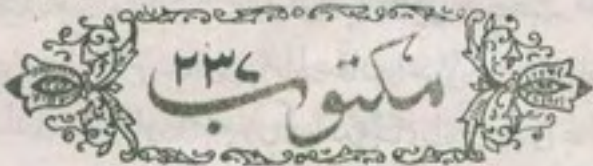 مکتوب ۲۳۷